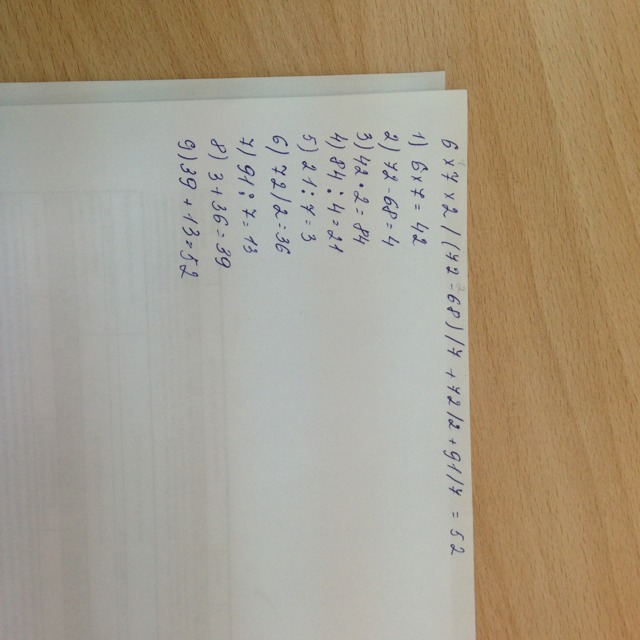 6 x 7 x 2 / (72 - 68) / 7 + 72 / 2 + 91 / 7 = 52
1) 6 x 7 = 42
2) 72 - 68 = 4
3) 42 • 2 = 84
4) 84 : 4 = 21
5) 21 : 7 = 3
6) 72 / 2 = 36
7) 91 : 7 = 13
8) 3 + 36 = 39
9) 39 + 13 = 52